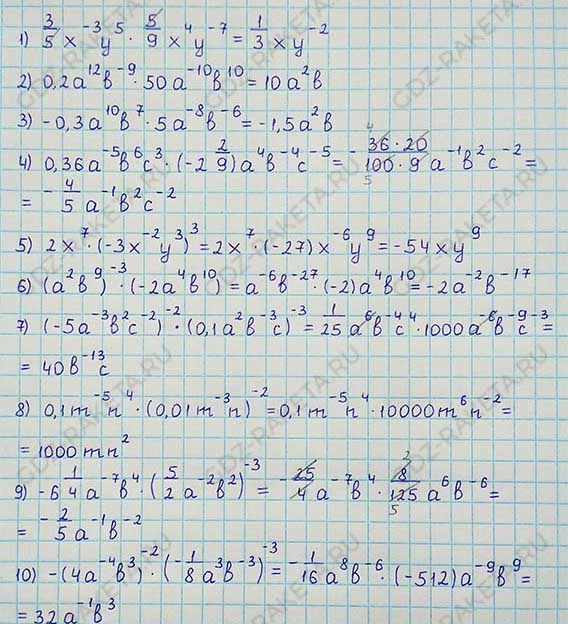 1) 3/5 x⁻³y⁵ · 5/9 x⁴y⁻⁷ = 1/3 xy⁻²
2) 0,2a¹²b⁻⁹ · 50a⁻¹⁰b¹⁰ = 10a²b
3) -0,3a¹⁰b⁷ · 5a⁻⁸b⁻⁶ = -1,5a²b
4) 0,36a⁻⁵b⁶c³ · (-2 2/9)a⁴b⁻⁴c⁻⁵ = - 36·20/100·9 a⁻¹b²c⁻² =
= - 4/5 a⁻¹b²c⁻²
5) 2x⁷ · (-3x⁻²y³)³ = 2x⁷ · (-27)x⁻⁶y⁹ = -54xy⁹
6) (a²b⁹)⁻³ · (-2a⁴b¹⁰) = a⁻⁶b⁻²⁷ · (-2)a⁴b¹⁰ = -2a⁻²b⁻¹⁷
7) (-5a⁻³b²c⁻²)⁻² · (0,1a²b⁻³c)⁻³ = 1/25 a⁶b⁻⁴c⁴ · 1000a⁻⁶b⁻⁹c⁻³ =
= 40b⁻¹³c
8) 0,1m⁻⁵n⁴ · (0,01m⁻³n)⁻² = 0,1m⁻⁵n⁴ · 10000m⁶n⁻² =
= 1000mn²
9) -6 1/4 a⁻⁷b⁴ · (5/2 a⁻²b²)⁻³ = - 25/4 a⁻⁷b⁴ · 8/125 a⁶b⁻⁶ =
= - 2/5 a⁻¹b⁻²
10) -(4a⁻⁴b³)⁻² · (-1/8 a³b⁻³)⁻³ = - 1/16 a⁸b⁻⁶ · (-512)a⁻⁹b⁹ =
= 32a⁻¹b³
GDZ-RAKETA.RU